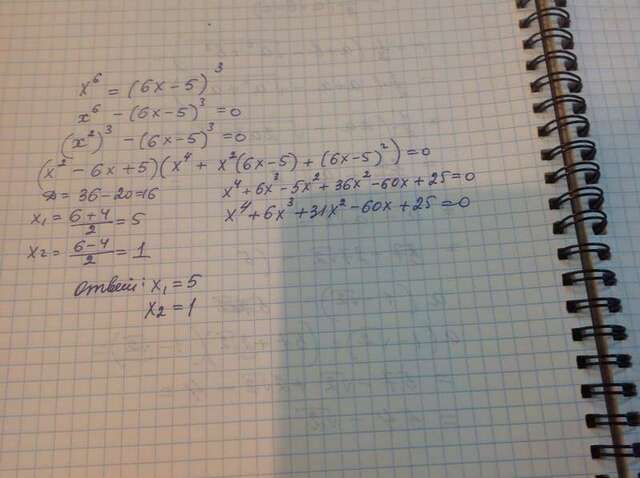 x⁶ = (6x-5)³
x⁶ - (6x-5)³ = 0
(x²)³ - (6x-5)³ = 0
(x² - 6x + 5)(x⁴ + x²(6x-5) + (6x-5)²) = 0
D = 36 - 20 = 16
x⁴ + 6x³ - 5x² + 36x² - 60x + 25 = 0
x₁ = (6+4)/2 = 5
x⁴ + 6x³ + 31x² - 60x + 25 = 0
x₂ = (6-4)/2 = 1
Ответ: x₁ = 5
x₂ = 1